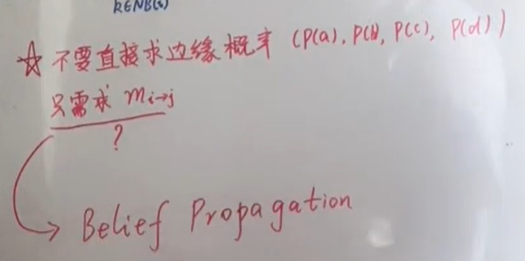 k∈NB(i)
☆ 不要直接求边缘概率 (P(a), P(b), P(c), P(d))
只需求 m i→j
?
Belief Propagation